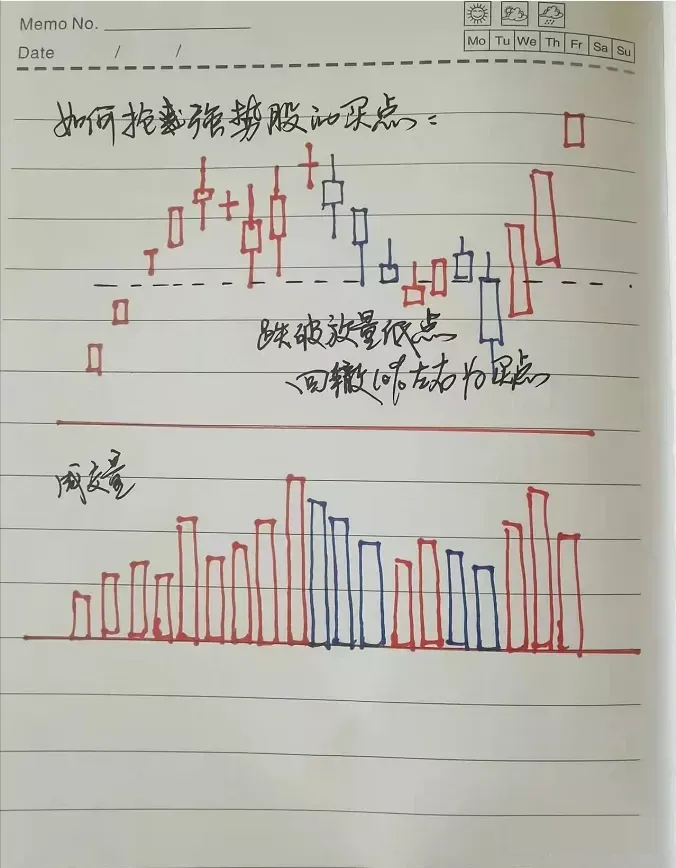 Memo No.
Date / /
Mo Tu We Th Fr Sa Su
如何抢强势股的买点：
跌破放量低点
回辙10%左右为买点
成交量